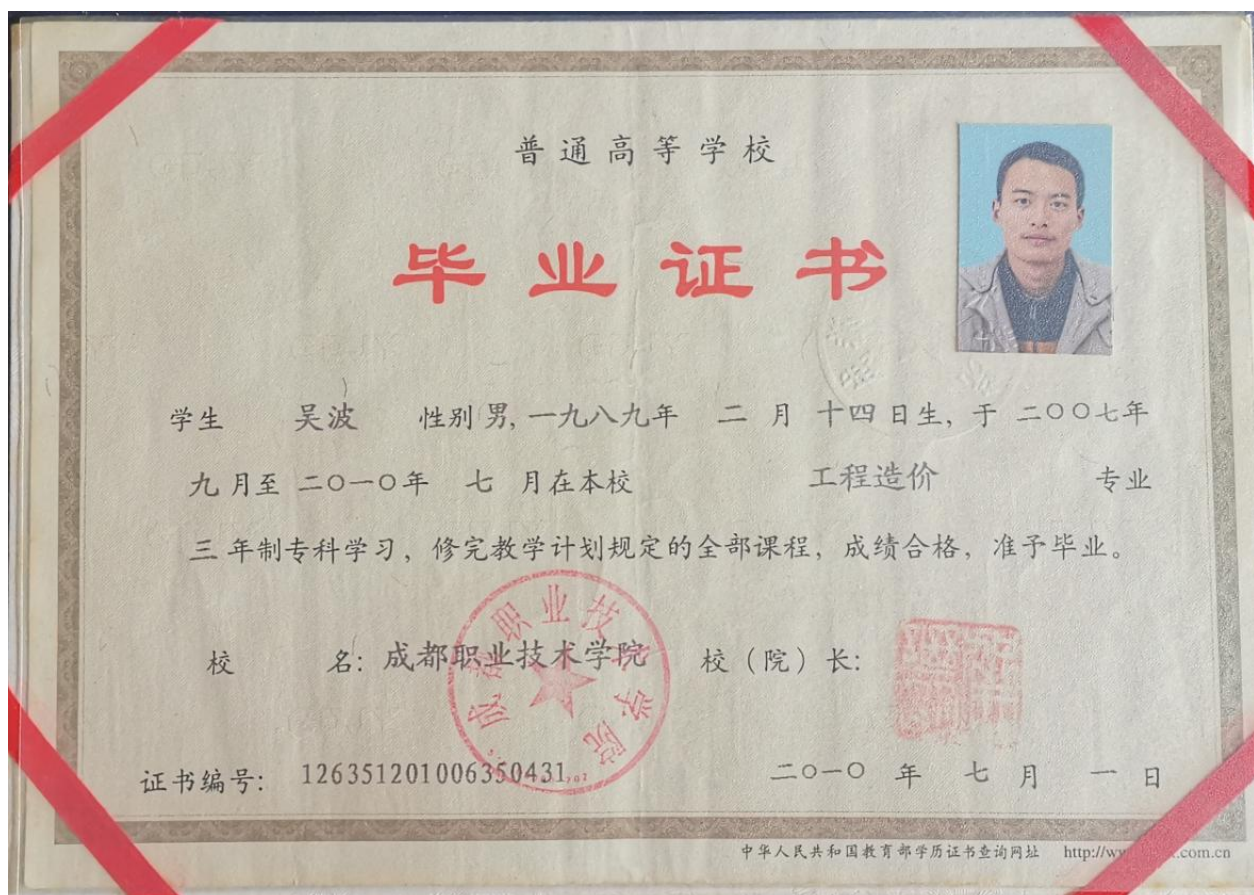 普通高等学校
毕业证书
学生 吴波 性别 男, 一九八九年 二 月 十四 日生, 于 二〇〇七年
九 月至 二〇一〇年 七 月在本校 工程造价 专业
三 年制专科学习, 修完教学计划规定的全部课程, 成绩合格, 准予毕业。
校 名: 成都职业技术学院 校(院)长:
成都职业技术学院
证书编号: 126351201006350431 二〇一〇 年 七 月 一 日
中华人民共和国教育部学历证书查询网址 http://w .com.cn